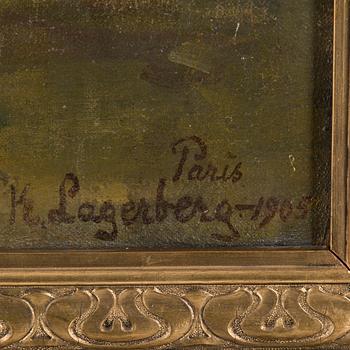 Paris
K. Lagerberg-1905